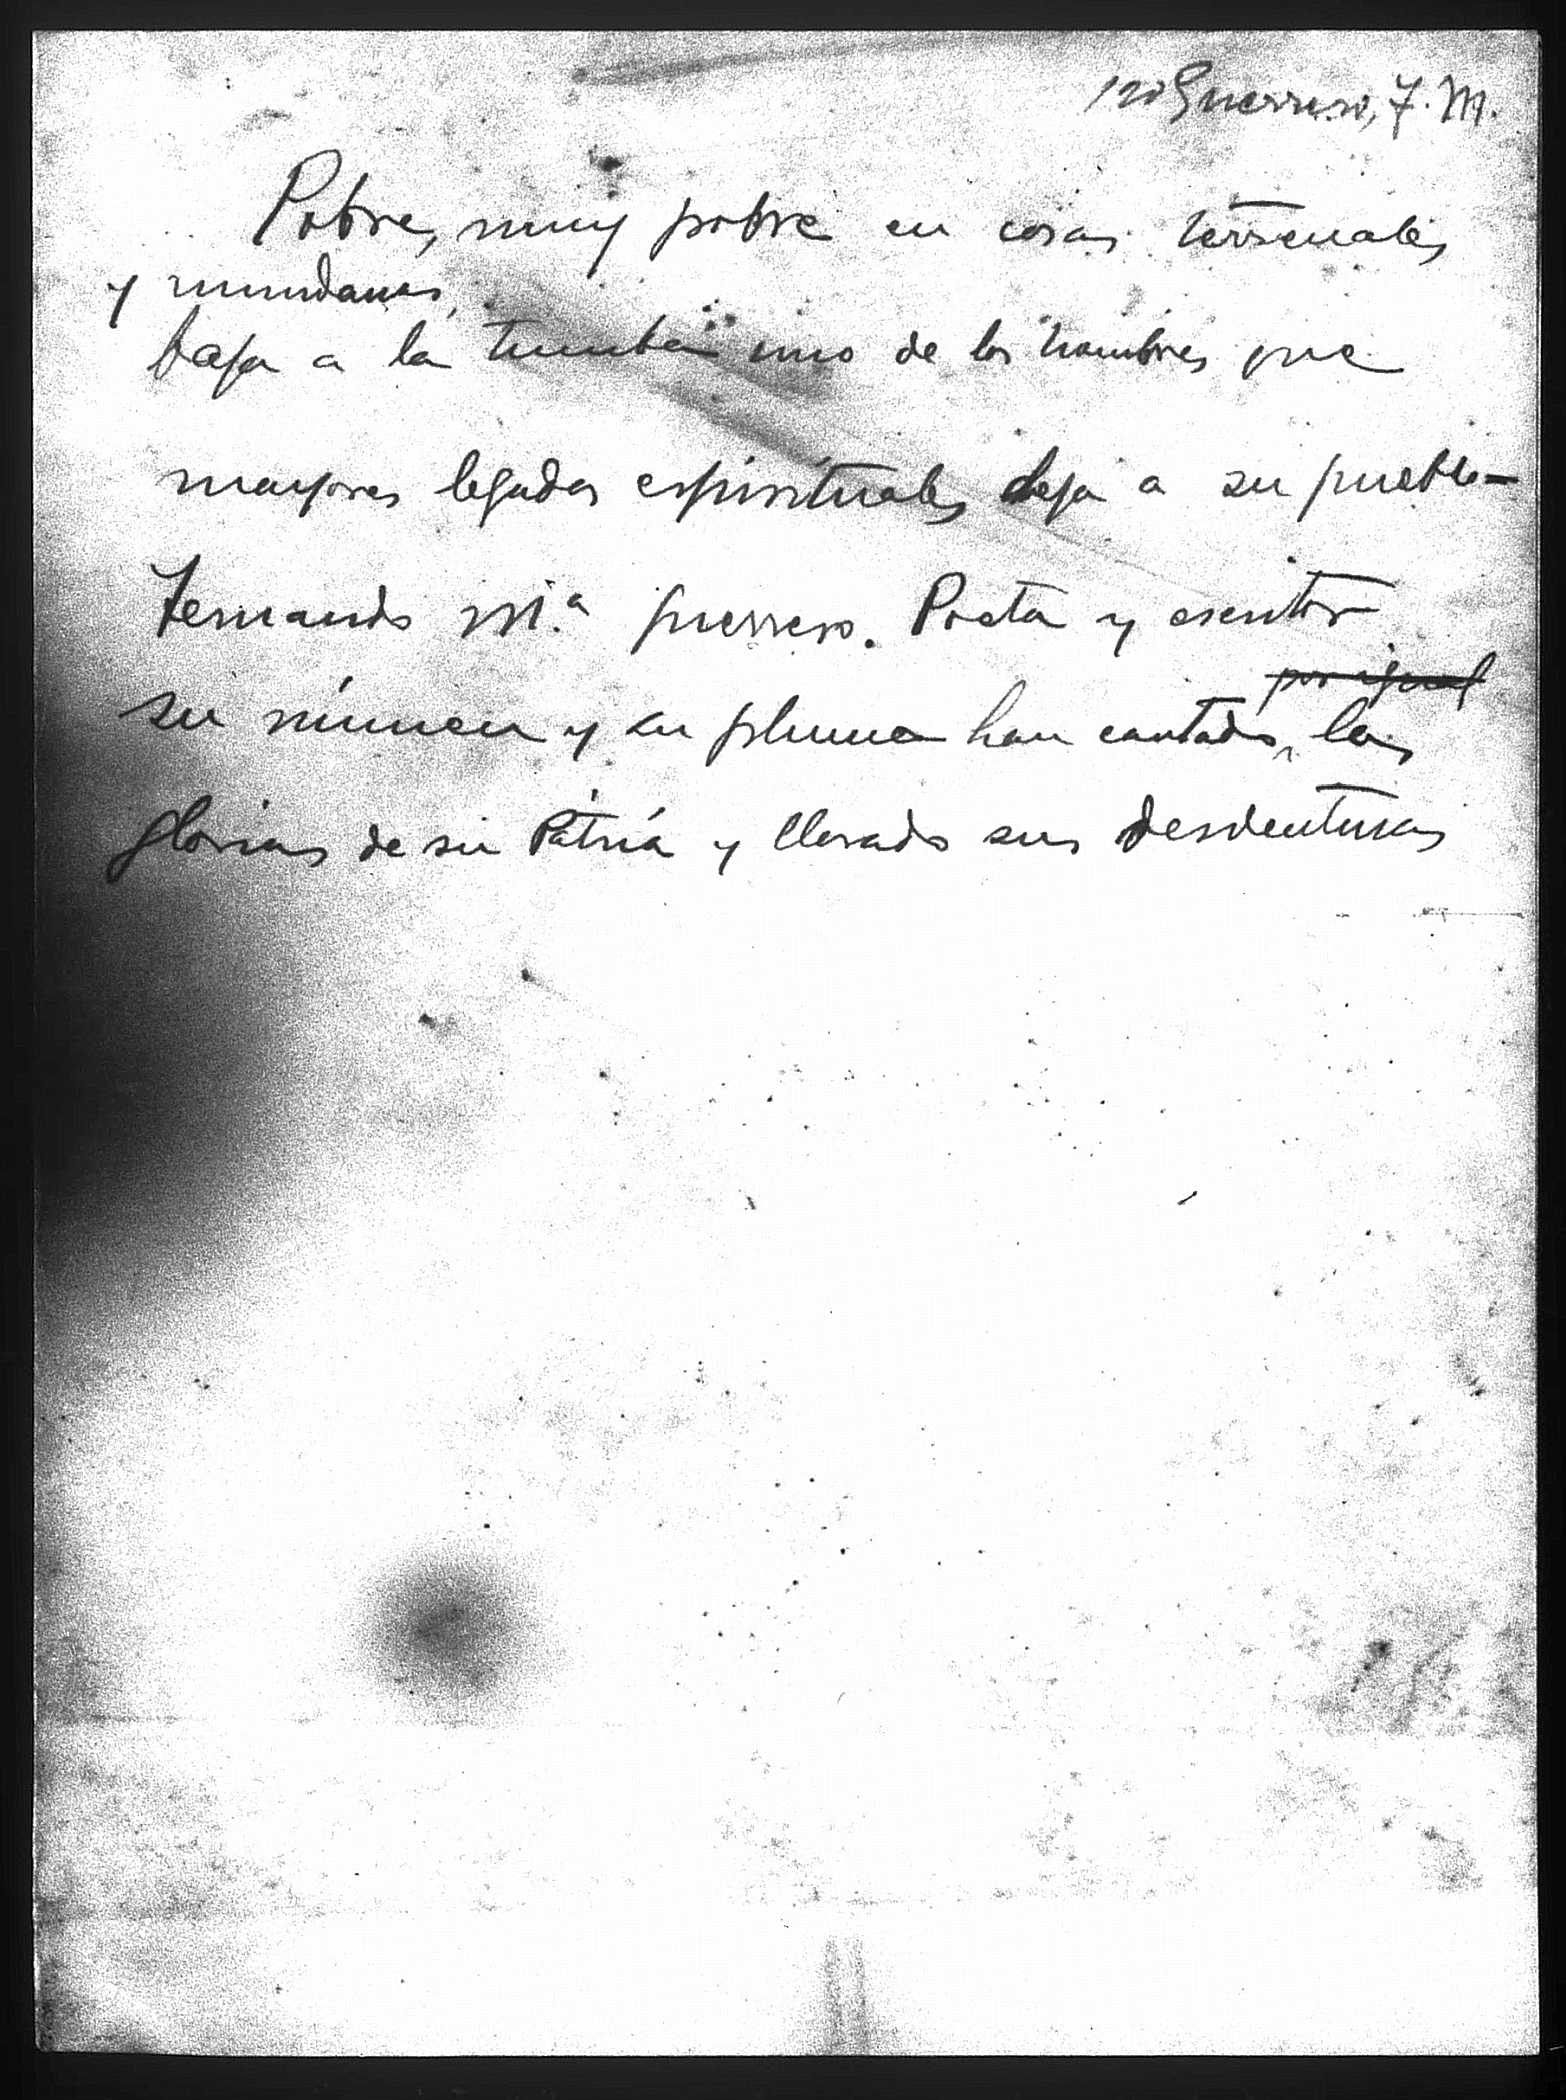 Guerrero, F. M.
Pobre, muy pobre en cosas terrenales
y mundanas,
baja a la tumba uno de los hombres que
mayores legados espirituales deja a su pueblo—
Fernando M.ª Guerrero. Poeta y escritor
por igual
su númen y su pluma han cantado las
glorias de su Patria y llorado sus desventuras